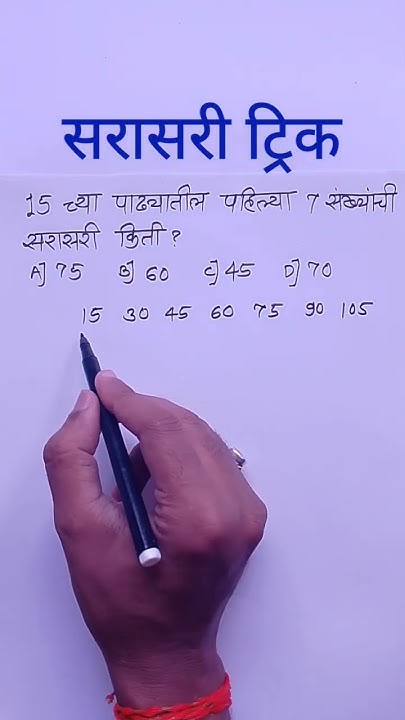 सरासरी ट्रिक
15 च्या पाढ्यातील पहिल्या 7 संख्यांची
सरासरी किती?
A] 75 B] 60 C] 45 D] 70
15 30 45 60 75 90 105